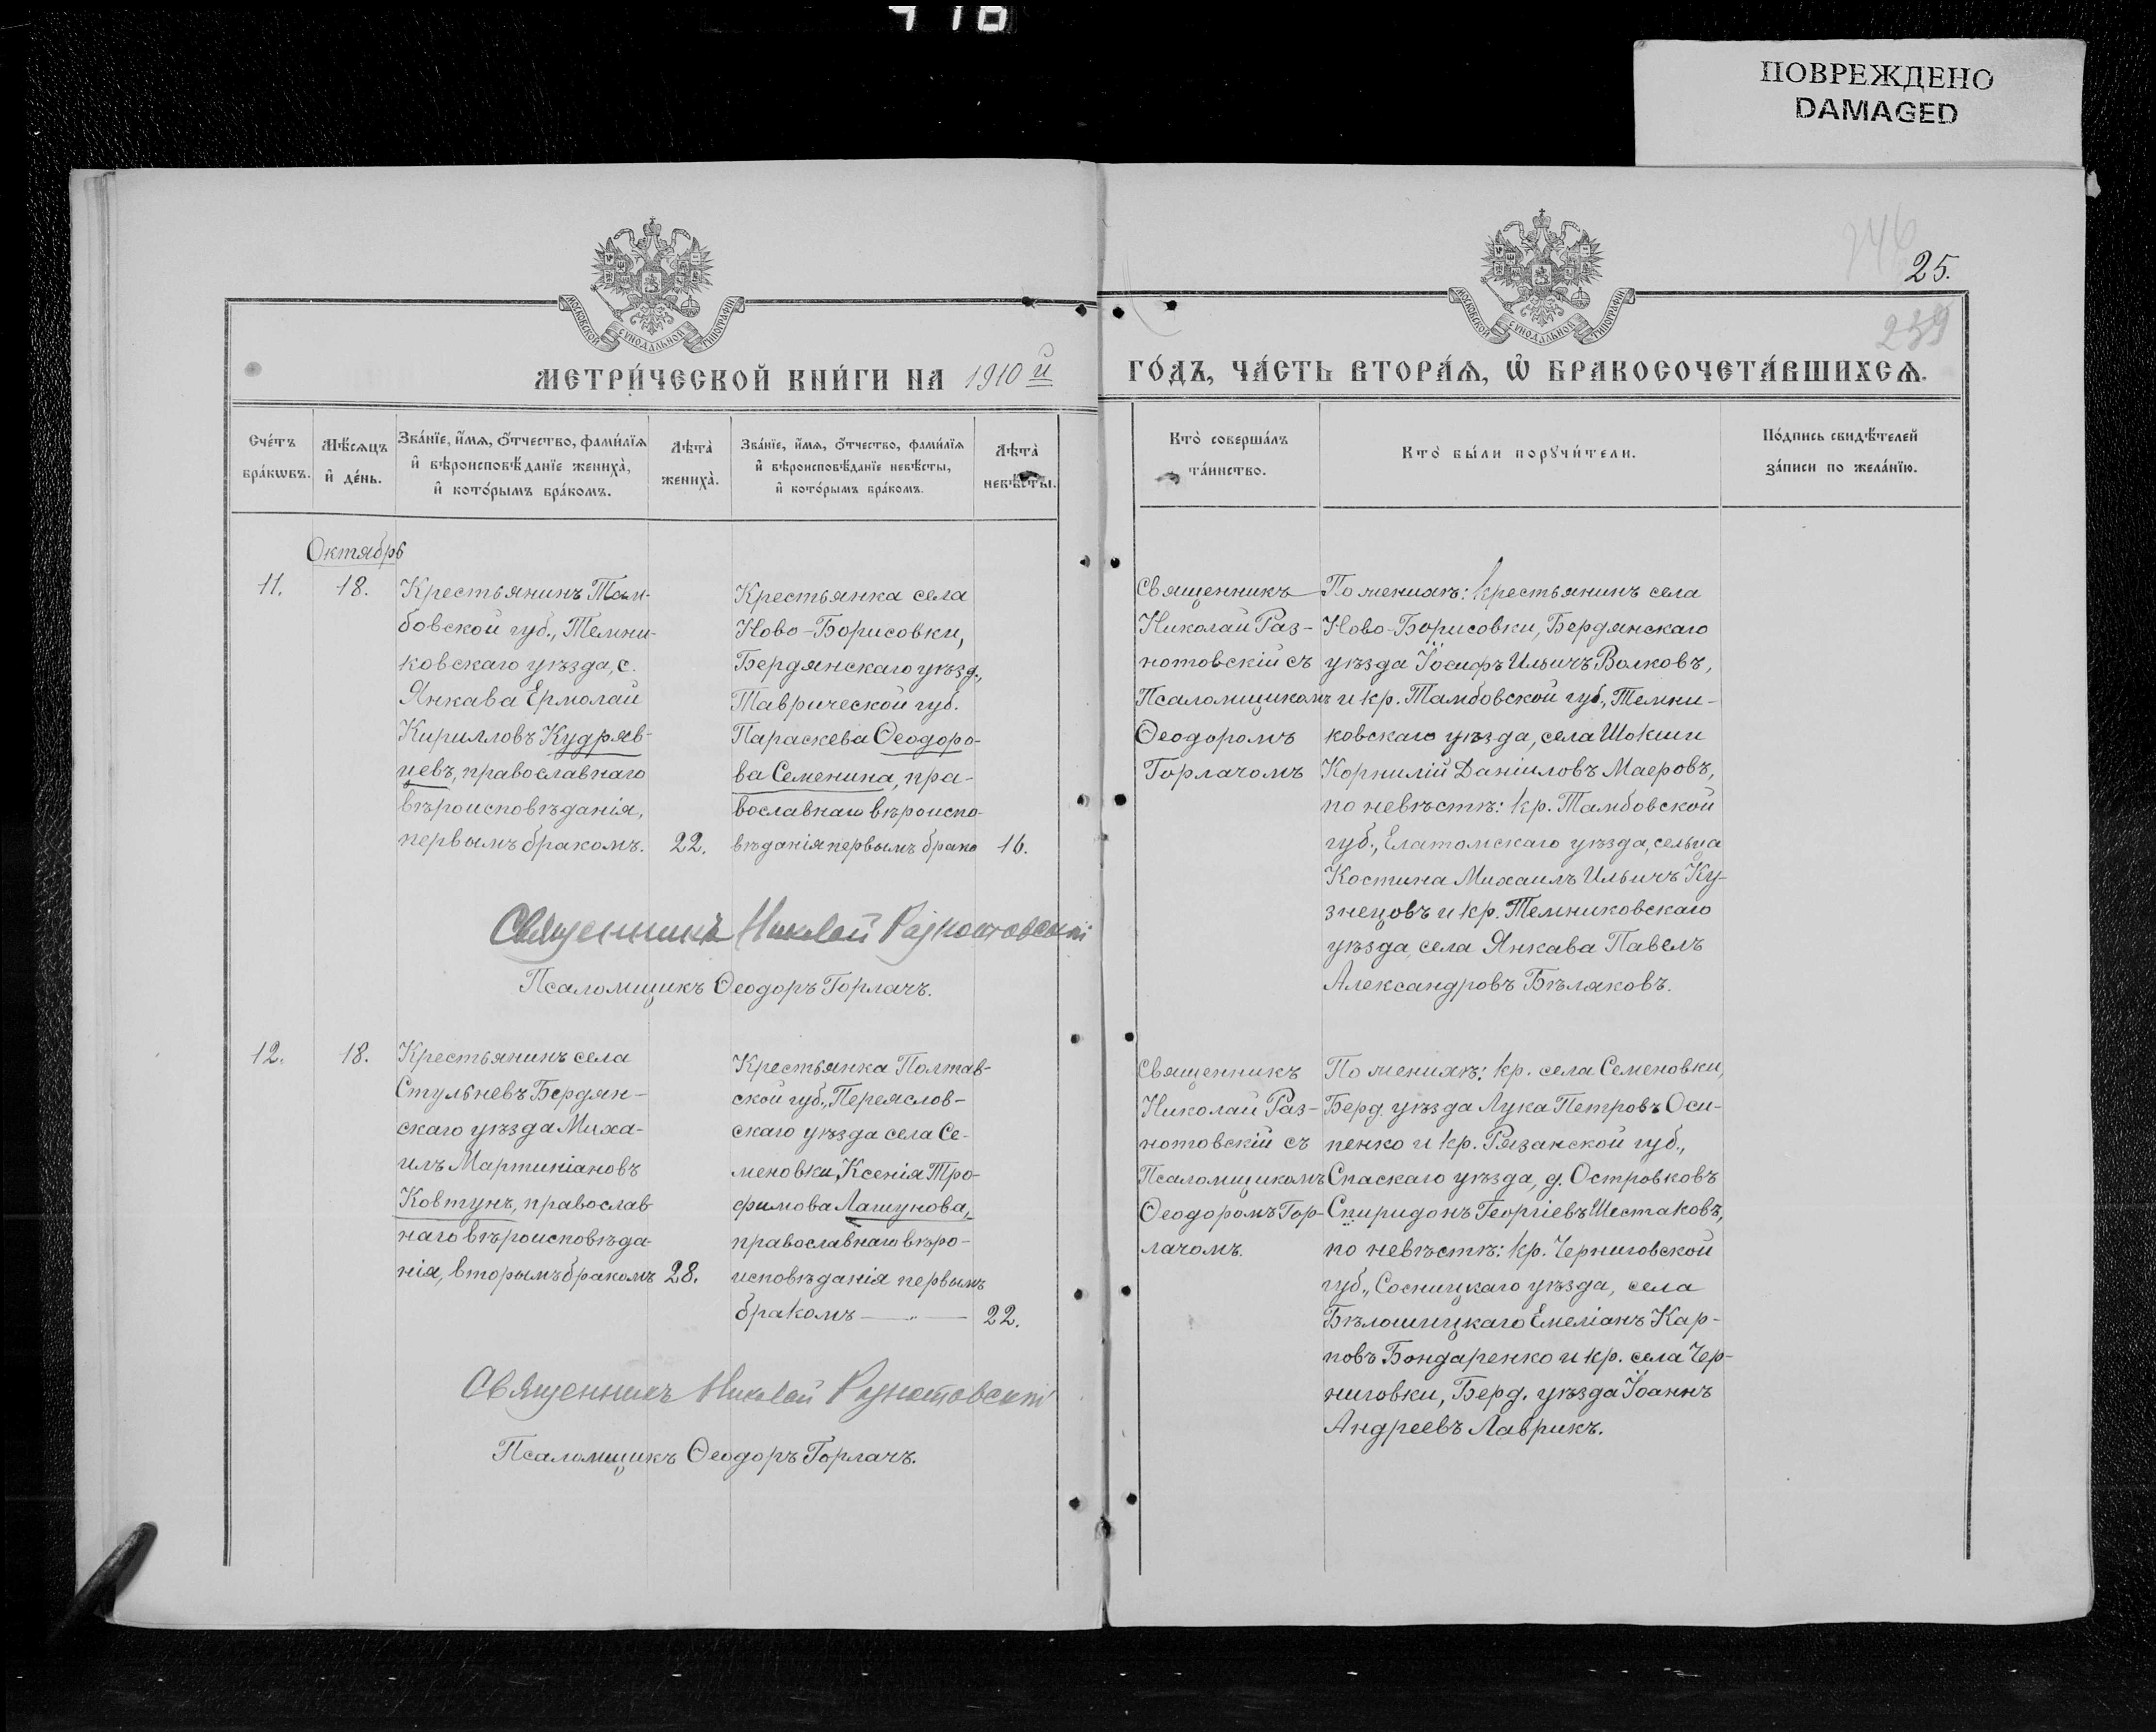 416
ПОВРЕЖДЕНО
DAMAGED
246
25.
239
МОСКОВСКОЙ СѴНОДАЛЬНОЙ ТИПОГРАФІИ
МОСКОВСКОЙ СѴНОДАЛЬНОЙ ТИПОГРАФІИ
МЕТРИ́ЧЕСКОЙ КНИ́ГИ НА 1910й
ГО́ДЪ, ЧА́СТЬ ВТОРА́Ѧ, Ѽ БРАКОСОЧЕТА́ВШИХСѦ.
Сче́тъ
бра́кѡвъ.
Мѣ́сяцъ
и҆ де́нь.
Зва́нїе, и҆́мѧ, ѻ҆́тчество, фами́лїѧ
и҆ вѣроисповѣ́данїе жениха̀,
и҆ кото́рымъ бра́комъ.
Лѣта̀
жениха̀.
Зва́нїе, и҆́мѧ, ѻ҆́тчество, фами́лїѧ
и҆ вѣроисповѣ́данїе невѣ́сты,
и҆ кото́рымъ бра́комъ.
Лѣта̀
невѣ́сты.
Кто̀ соверша́лъ
та́инство.
Кто̀ бы́ли порꙋчи́тели.
По́дпись свидѣ́телей
за́писи по жела́нїю.
Октябрь
11.
18.
Крестьянинъ Там-
бовской губ., Темни-
ковскаго уѣзда, с.
Янкава Ермолай
Кирилловъ Кудряв-
цевъ, православнаго
вѣроисповѣданія,
первымъ бракомъ.
22.
Крестьянка села
Ново-Борисовки,
Бердянскаго уѣзд.,
Таврической губ.
Параскева Ѳеодоро-
ва Семенина, пра-
вославнаго вѣроиспо-
вѣданія первымъ брако
16.
Священникъ
Николай Раз-
нотовскій съ
Псаломщикомъ
Ѳеодоромъ
Горлачомъ
По женихѣ: крестьянинъ села
Ново-Борисовки, Бердянскаго
уѣзда Іосифъ Ильичъ Волковъ,
и кр. Тамбовской губ., Темни-
ковскаго уѣзда, села Шокши
Корнилій Даніиловъ Маеровъ,
по невѣстѣ: кр. Тамбовской
губ., Елатомскаго уѣзда, сельца
Костина Михаилъ Ильичъ Ку-
знецовъ и кр. Темниковскаго
уѣзда, села Янкава Павелъ
Александровъ Бѣляковъ.
Священникъ Николай Разнотовскій
Псаломщикъ Ѳеодоръ Горлачъ.
12.
18.
Крестьянинъ села
Стульневъ Бердян-
скаго уѣзда Миха-
илъ Мартиніановъ
Ковтунъ, православ-
наго вѣроисповѣда-
нія, вторымъ бракомъ
28.
Крестьянка Полтав-
ской губ., Переяслов-
скаго уѣзда села Се-
меновки, Ксенія Тро-
фимова Лашунова,
православнаго вѣро-
исповѣданія первымъ
бракомъ — " —
22.
Священникъ
Николай Раз-
нотовскій съ
Псаломщикомъ
Ѳеодоромъ Гор-
лачомъ.
По женихѣ: кр. села Семеновки,
Берд. уѣзда Лука Петровъ Оси-
пенко и кр. Рязанской губ.,
Спаскаго уѣзда, д. Островковъ
Спиридонъ Георгіевъ Шестаковъ,
по невѣстѣ: кр. Черниговской
губ., Сосницкаго уѣзда, села
Бѣлошицкаго Емеліанъ Кар-
повъ Бондаренко и кр. села Чер-
ниговки, Берд. уѣзда Іоаннъ
Андреевъ Лаврикъ.
Священникъ Николай Разнотовскій
Псаломщикъ Ѳеодоръ Горлачъ.